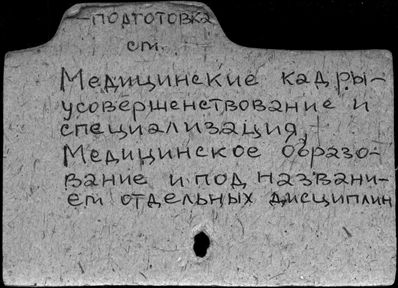 –подготовка
см.
Медицинские кадры–
усовершенствование и
специализация,
Медицинское образо-
вание и под названи-
ем отдельных дисциплин